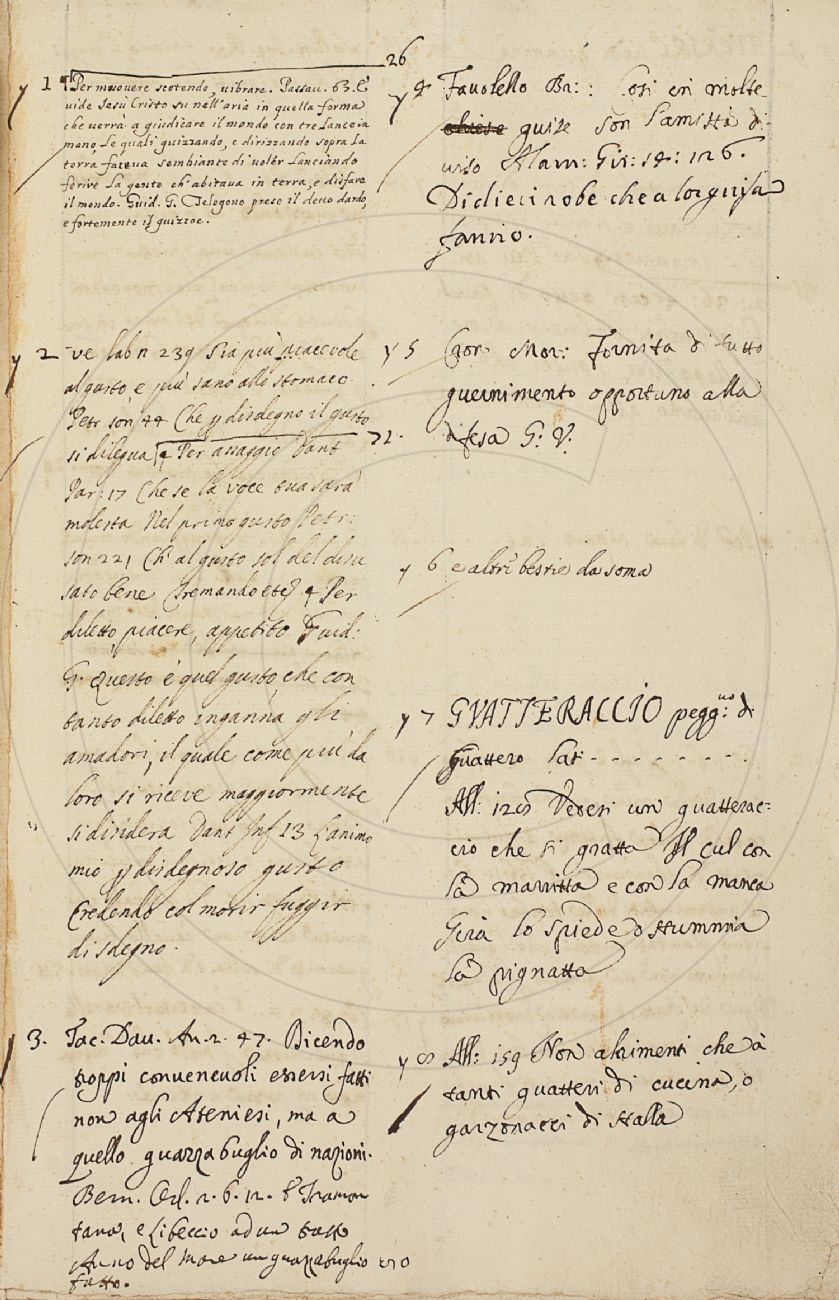 26
1 ¶ Per muovere scotendo, vibrare. Passau. 63. E
vide Jesù Cristo su nell'aria in quella forma
che verrà a giudicare il mondo con tre lance in
mano, le quali guizzando, e dirizzando sopra la
terra faceva sembiante di voler lanciando
ferire la gente ch'abitava in terra, e disfare
il mondo. Guid. G. Telegono prese il detto dardo,
e fortemente il guizzoe.
2 ve lab n 239 Sia più piacevole
al gusto, e più sano allo stomaco
Petr son 44 Che p disdegno il gusto
si dilegua, ¶ Per assaggio Dant 72.
Par: 17 Che se la voce tua sarà
molesta Nel primo gusto Petr:
son 221 Ch'al gusto sol del disu
sato bene Tremando etc ¶ Per
diletto, piacere, appetito Guid:
G. Questo è quel gusto, che con
tanto diletto inganna gli
amadori, il quale come più da
loro si riceve maggiormente
si disidera Dant Inf 13 L'animo
mio p disdegnoso gusto
Credendo col morir fuggir
disdegno.
3. Tac. Dav. An. 2. 47. Dicendo
troppi convenevoli essersi fatti
non agli Ateniesi, ma a
quello guazzabuglio di nazioni.
Bern. Orl. 2. 6. 12. E Tramon
tana, e Libeccio ad un tratto
Anno del mare un guazzabuglio
fatto.
y 4 Favolello Br: Così in molte
guise son l'amistà di
viso Alam: Gir: 14: 126.
Di dieci robe che a lor guisa
fanno.
y 5 Cron Mor: Fornita di tutto
guernimento opportuno alla
difesa G: V:
y 6 e altri bestie da soma
y 7 GUATTERACCIO pegg: di
guattero Lat: - - - - - - - -
All: 120 Vedesi un guatterac=
cio che si gratta Il cul con
la manritta e con la manca
Gira lo spiede o stummia
la pignatta
y 8 All: 159 Non altrimenti che à
tanti guatteri di cucina, o
garzonacci di stalla